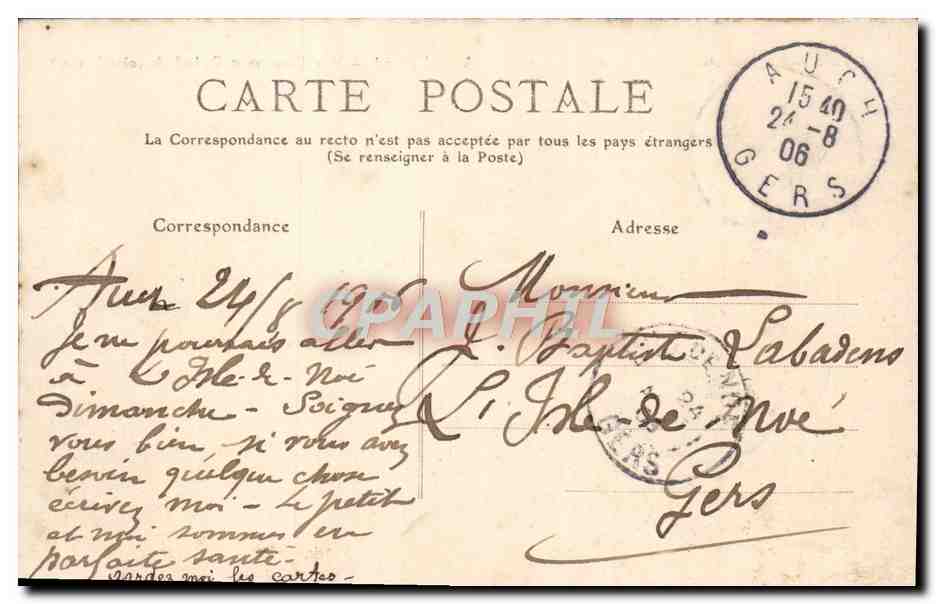 CARTE POSTALE
La Correspondance au recto n'est pas acceptée par tous les pays étrangers
(Se renseigner à la Poste)
AUCH
15 40
24 -8
06
GERS
Correspondance
Adresse
Auch 24/8 1906
Je ne pourrais aller
à L'Isle-de-Noé
Dimanche - Soignez
vous bien, si vous avez
besoin quelque chose
écrivez moi - Le petit
et moi sommes en
parfaite santé -
gardez moi les cartes -
Monsieur
J. Baptiste Labadens
L'Isle-de-Noé
Gers
GERS
CPAPHIL